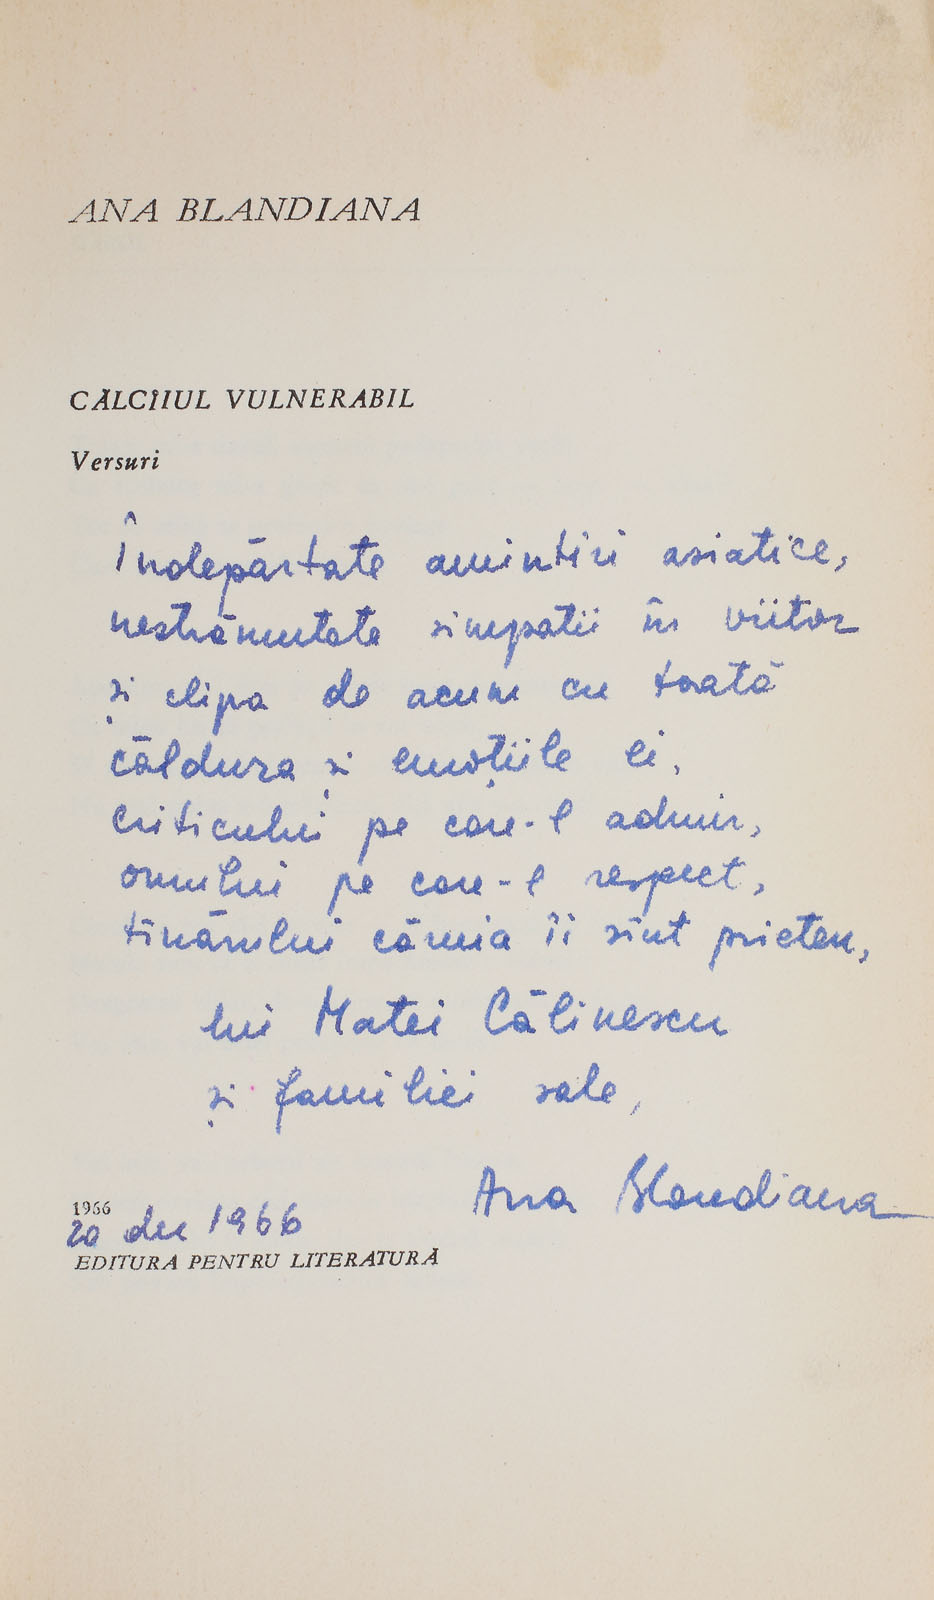 ANA BLANDIANA
CĂLCÎIUL VULNERABIL
Versuri
Îndepărtate amintiri asiatice,
nestrămutate simpatii în viitor
și clipa de acum cu toată
căldura și emoțiile ei,
criticului pe care-l admir,
omului pe care-l respect,
tînărului căruia îi sînt prieten,
lui Matei Călinescu
și familiei sale,
Ana Blandiana
1966
20 dec 1966
EDITURA PENTRU LITERATURĂ